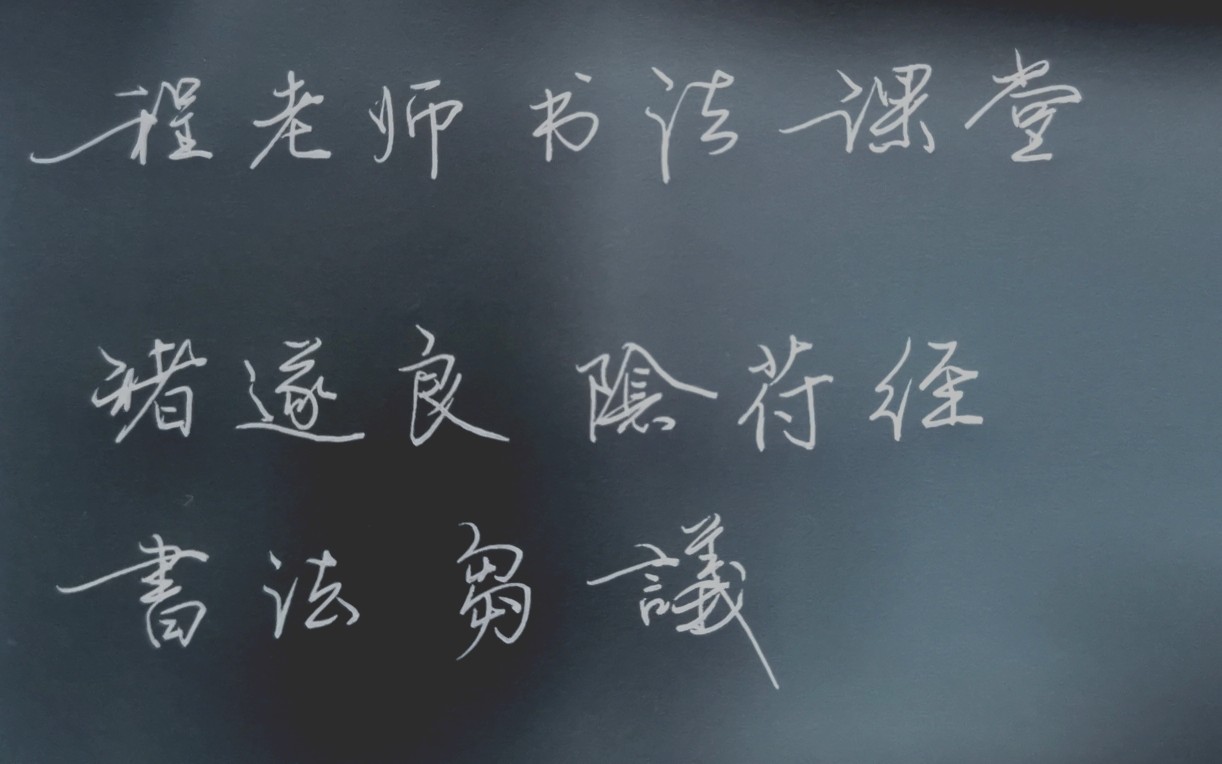 程老师书法课堂
褚遂良陰苻经
書法芻議